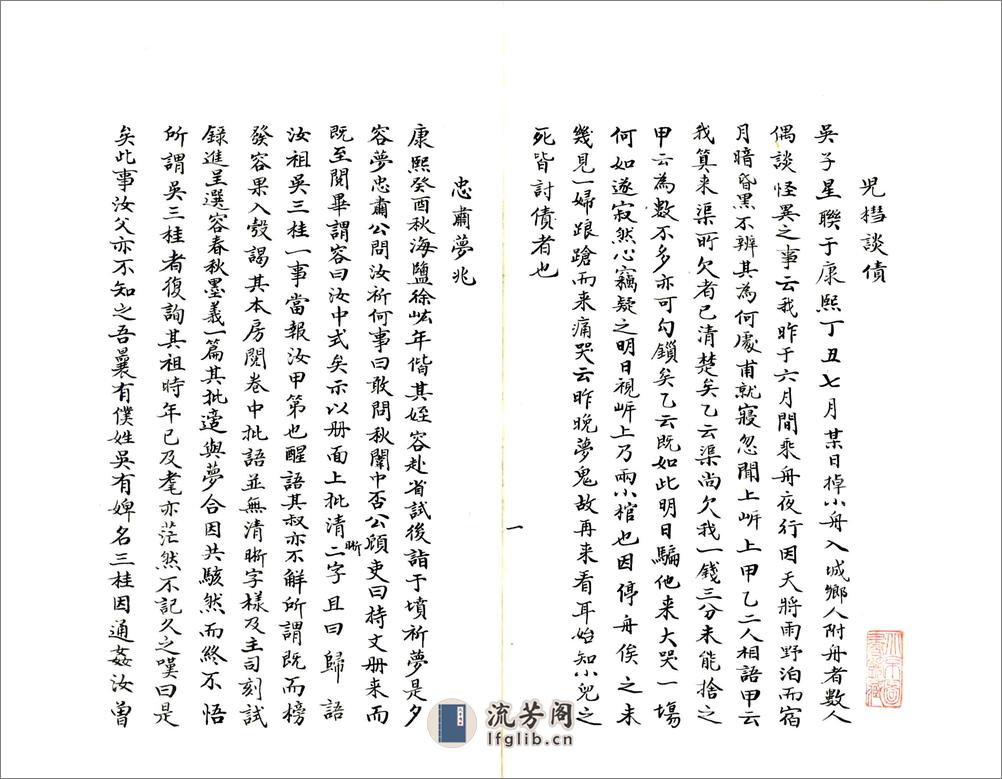 兒槥談債
吳子星聯于康熙丁丑七月某日掉小舟入城鄉人附舟者數人
偶談怪異之事云我昨于六月間乘舟夜行因天將雨野泊而宿
月暗昏黑不辨其為何處甫就寢忽聞上岸上甲乙二人相語甲云
我算来渠所欠者已清楚矣乙云渠尚欠我一錢三分未能捨之
甲云為數不多亦可勾鎖矣乙云既如此明日騙他来大哭一塲
何如遂寂然心竊疑之明日視岸上乃兩小棺也因停舟俟之未
幾見一婦踉蹌而来痛哭云昨晚夢鬼故再来看耳始知小兒之
死皆討債者也
忠肅夢兆
康熙癸酉秋海鹽徐岦年偕其姪容赴省試後詣于墳祈夢是夕
容夢忠肅公問汝祈何事曰敢問秋闈中否公顧吏曰持文册来而
既至閱畢謂容曰汝中式矣示以册面上批清晰二字且曰歸語
汝祖吳三桂一事當報汝甲第也醒語其叔亦不解所謂既而榜
發容果入彀謁其本房閱卷中批語並無清晰字樣及主司刻試
錄進呈選容春秋墨義一篇其批適與夢合因共駭然而終不悟
所謂吳三桂者復詢其祖時年已及耄亦茫然不記久之嘆曰是
矣此事汝父亦不知之吾曩有僕姓吳有婢名三桂因通姦汝曾
一
流芳阁
lfglib.cn